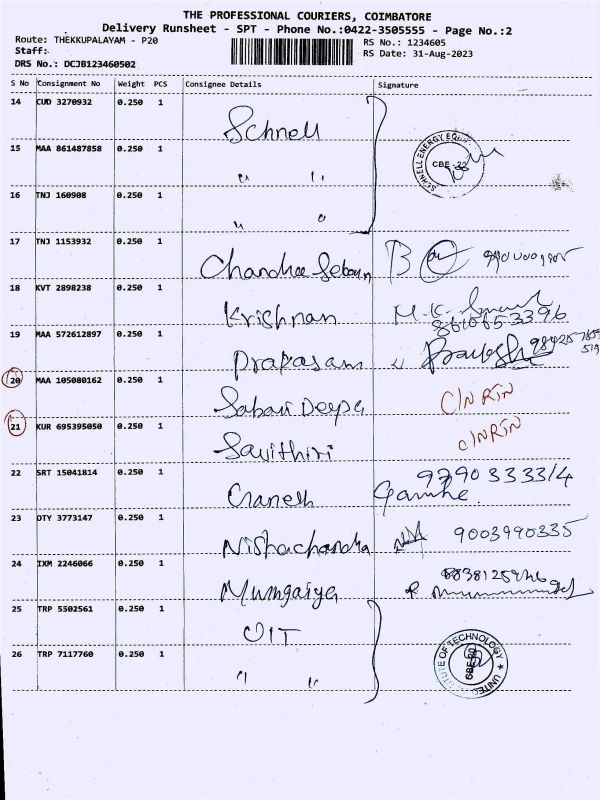 THE PROFESSIONAL COURIERS, COIMBATORE
Delivery Runsheet - SPT - Phone No.:0422-3505555 - Page No.:2
Route: THEKKUPALAYAM - P20 RS No.: 1234605
Staff: RS Date: 31-Aug-2023
DRS No.: DCJB123460502
S No Consignment No Weight PCS Consignee Details Signature
14 CUD 3270932 0.250 1 Schnell
15 MAA 861487858 0.250 1 " "
SCHNELL ENERGY EQUI CBE - 22
16 TNJ 160908 0.250 1 " "
17 TNJ 1153932 0.250 1 Chandra
18 KVT 2898238 0.250 1 Krishnan M.K.
8610653396
19 MAA 572612897 0.250 1 Prakasam
20 MAA 105080162 0.250 1 Sabari Deepa C/N RTN
21 KUR 695395050 0.250 1 Savithiri C/N RTN
22 SRT 15041814 0.250 1 Ganesh 9790333314
23 OTY 3773147 0.250 1 Nishachandra 9003990335
24 IXM 2246066 0.250 1 Murugaiya
25 TRP 5502561 0.250 1 UIT
26 TRP 7117760 0.250 1 " "
UNITED INSTITUTE OF TECHNOLOGY CBE-20